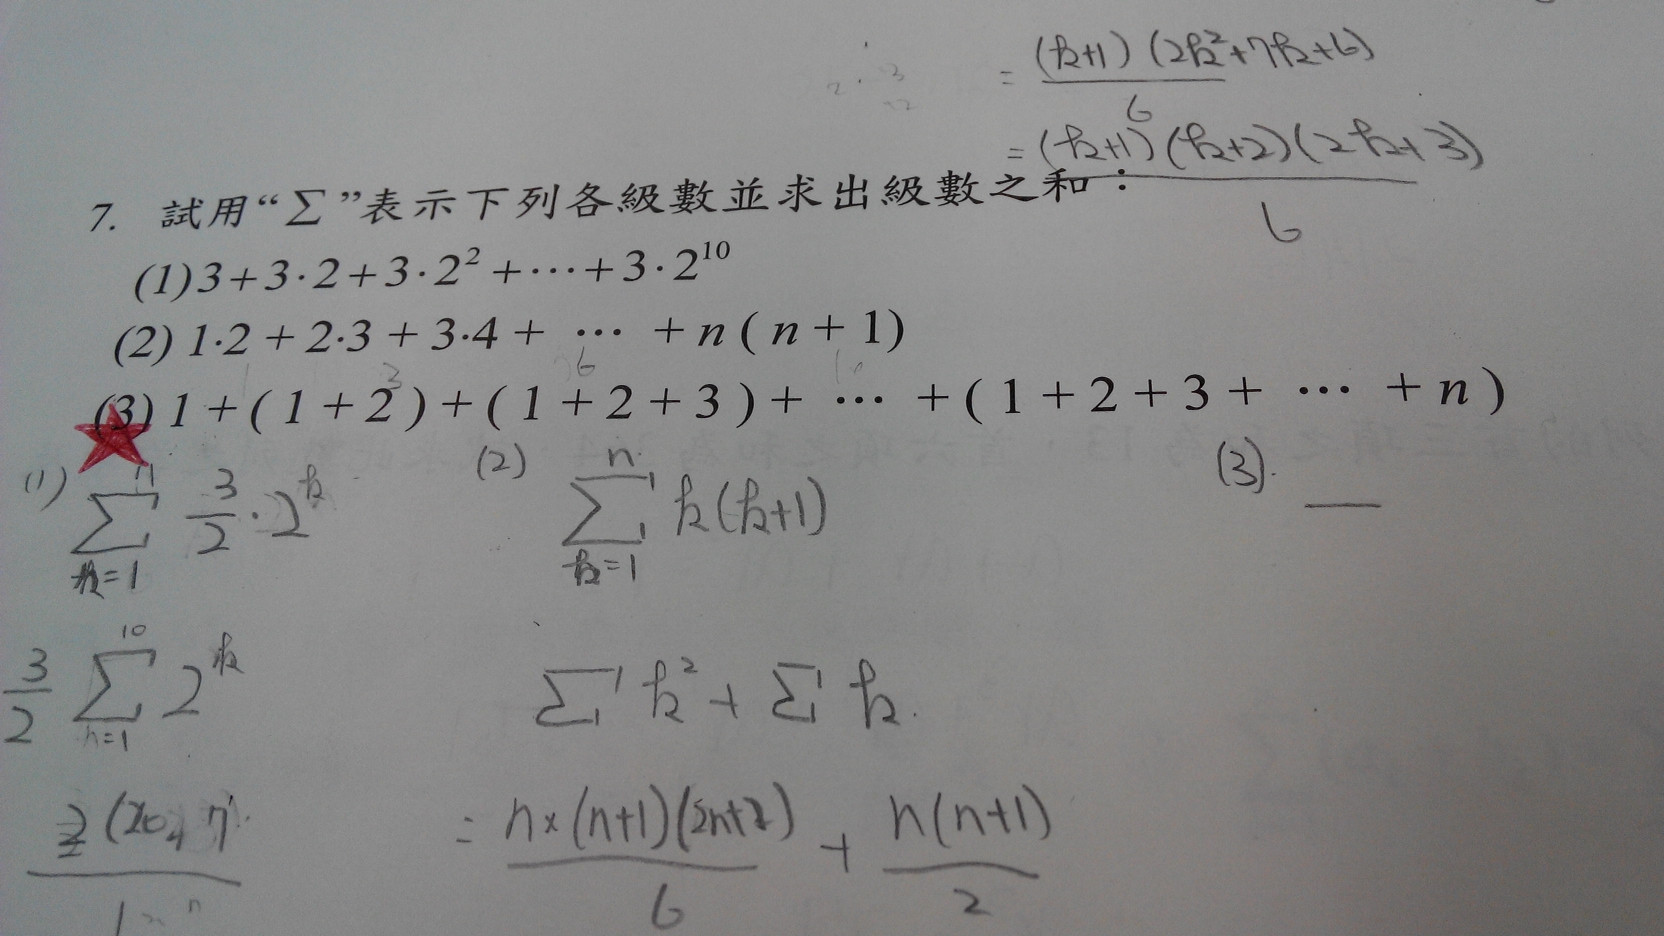 = (k+1)(2k²+7k+6) / 6
= (k+1)(k+2)(2k+3) / 6
7. 試用“Σ”表示下列各級數並求出級數之和：
(1) 3+3·2+3·2²+⋯+3·2¹⁰
(2) 1·2+2·3+3·4+ ⋯ +n(n+1)
3 6
(3) 1+(1+2)+(1+2+3)+ ⋯ +(1+2+3+ ⋯ +n)
(1) Σ k=1 11 3/2 · 2^k
(2) Σ k=1 n k(k+1)
(3).
3/2 Σ n=1 10 2^k
Σ k² + Σ k.
= n×(n+1) / 6 + n(n+1) / 2